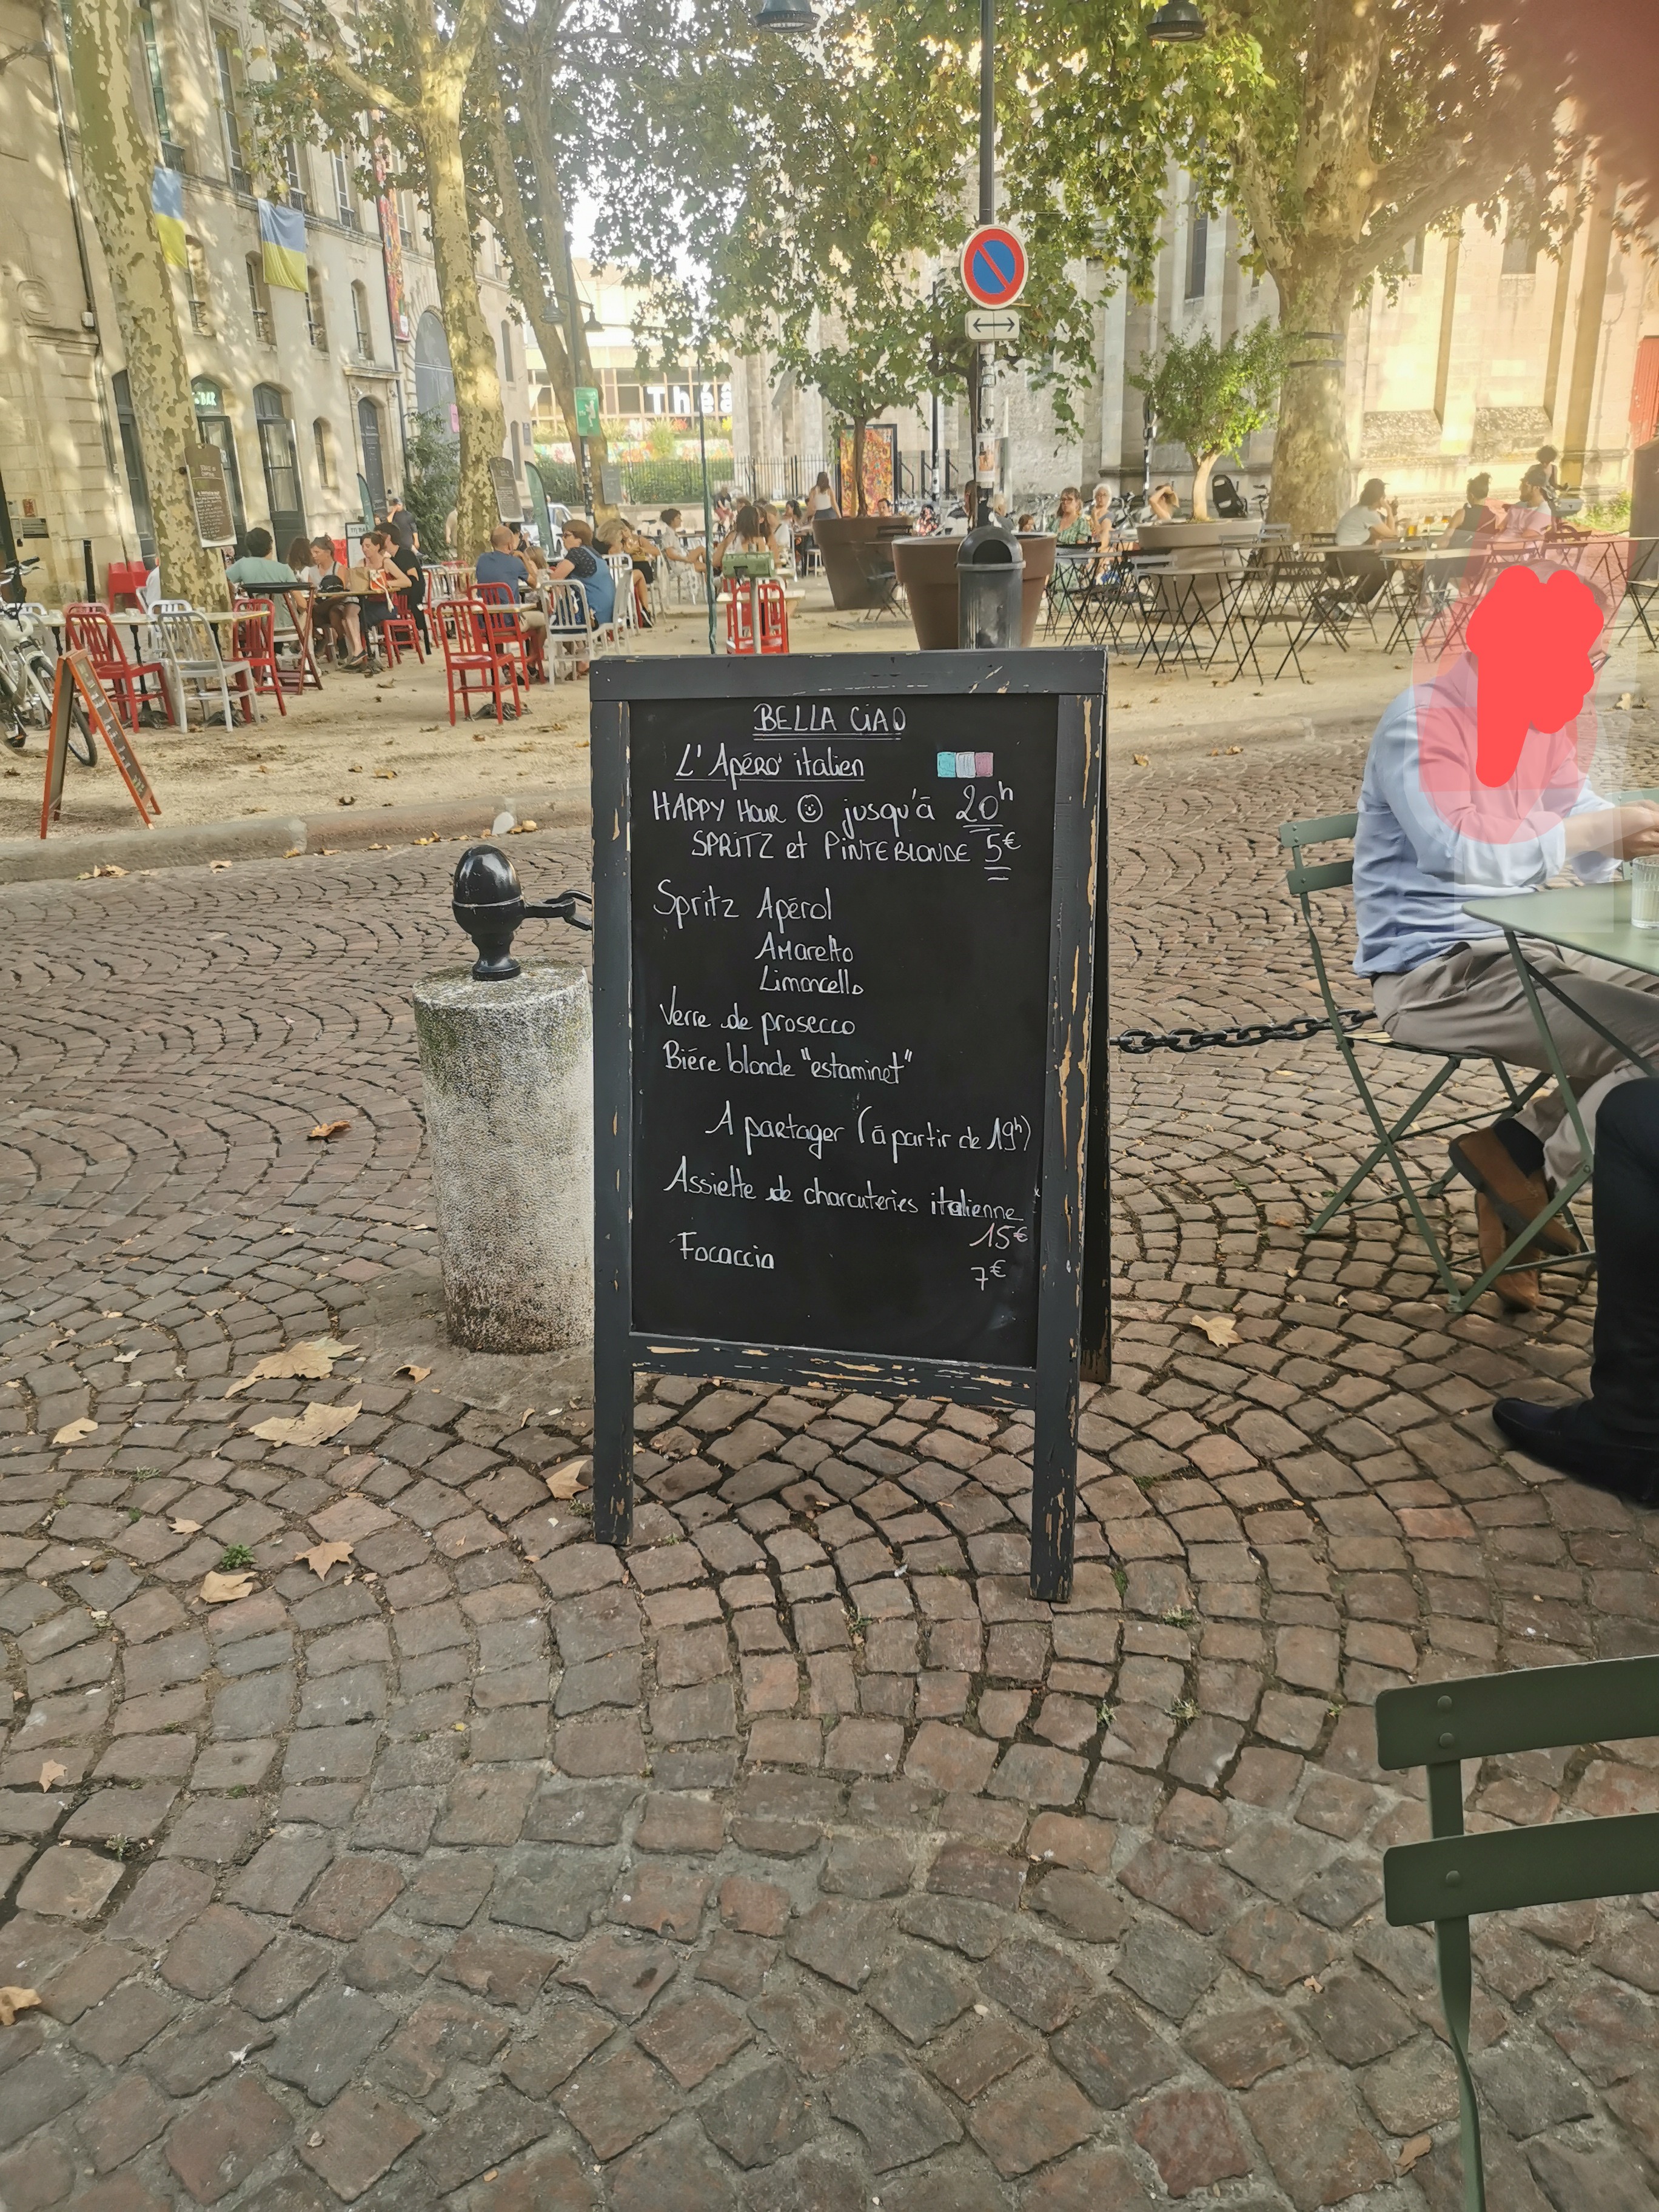 BAR
Théâ
BELLA CiAO
L'Apéro' italien
HAPPY HOUR jusqu'à 20h
SPRiTZ et PiNTE BLONDE 5€
Spritz Apérol
Amaretto
Limoncello
Verre de prosecco
Biére blonde "estaminet"
A partager (à partir de 19h)
Assiette de charcuteries italienne
15€
Focaccia
7€